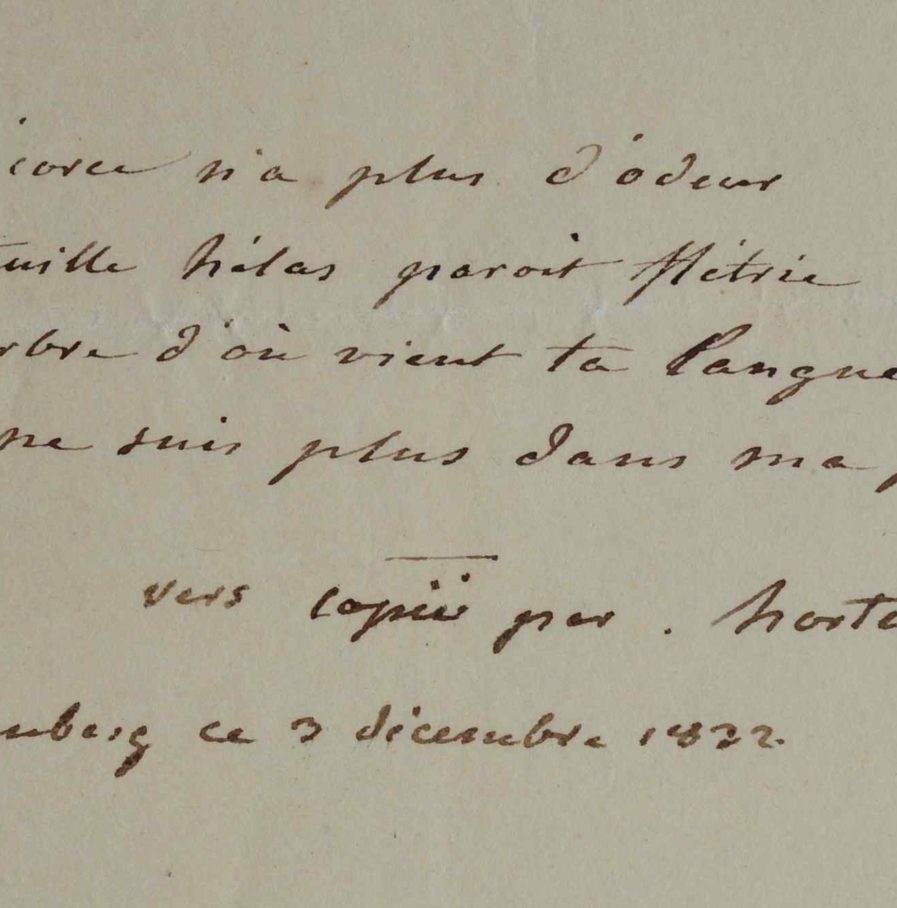 corce n'a plus d'odeur
uille hélas paroit flétrie
rbre d'où vient ta langue
ne suis plus dans ma
vers copiés par . horte
nberg ce 3 décembre 1832.